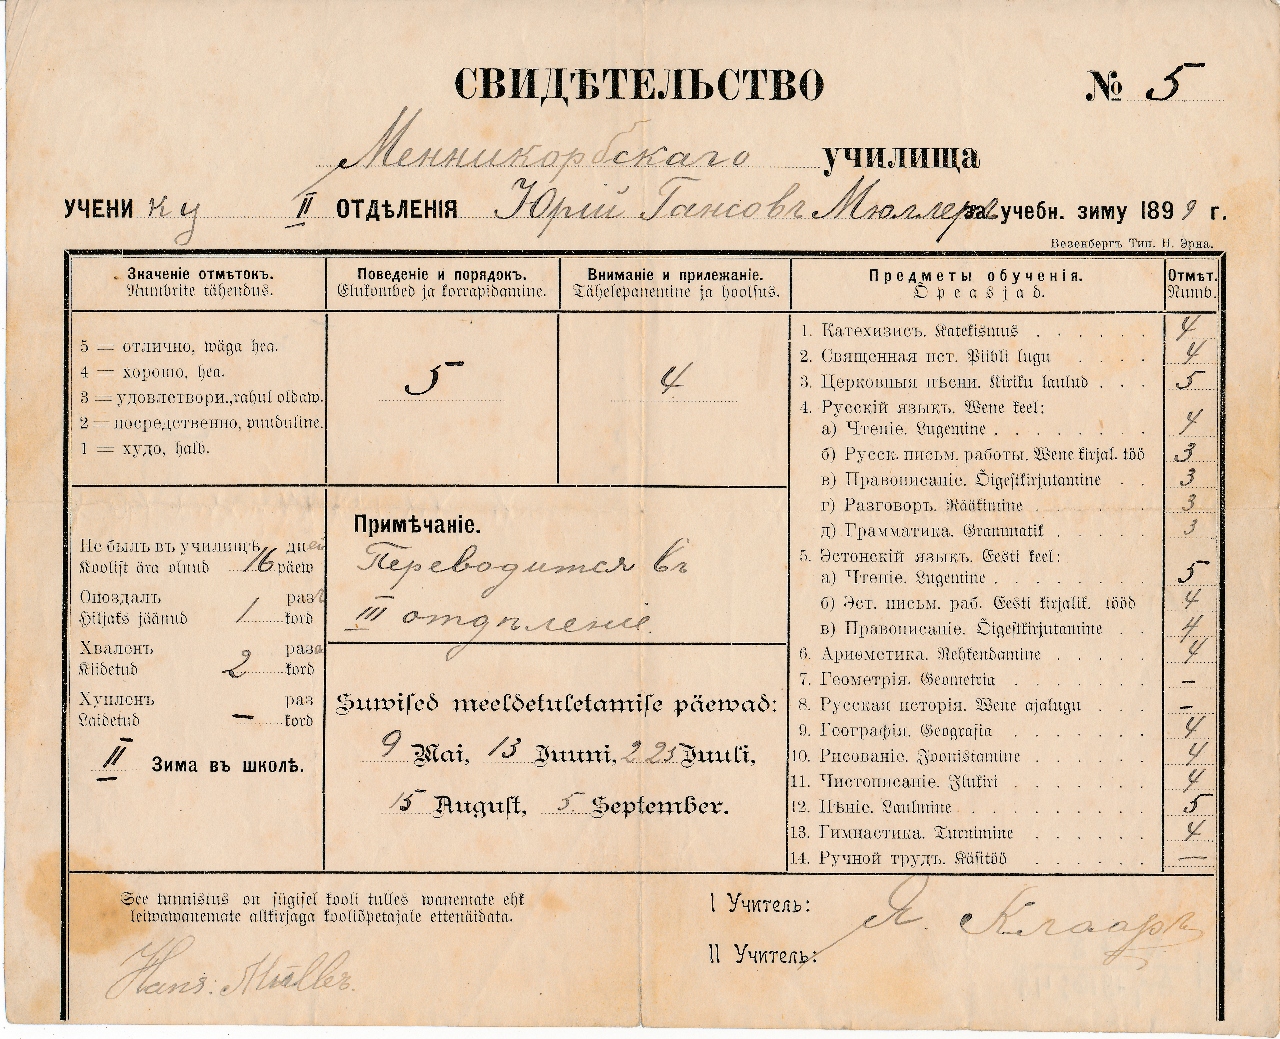 СВИДѢТЕЛЬСТВО № 5
Менникорбскаго училища
УЧЕНИку II ОТДѢЛЕНІЯ Юрій Гансовъ Мюллеръ за учебн. зиму 1899 г.
Везенбергъ Тип. Н. Эрна.
Значеніе отмѣтокъ.
Numbrite tähendus.
5 — отлично, wäga hea.
4 — хорошо, hea.
3 — удовлетвори., rahul oldaw.
2 — посредственно, puuduline.
1 — худо, halb.
Поведеніе и порядокъ.
Elukombed ja korrapidamine.
5
Вниманіе и прилежаніе.
Tähelepanemine ja hoolsus.
4
Предметы обученія. Отмѣт.
Õpeasjad. Numb.
1. Катехизисъ. Katekismus 4
2. Священная ист. Piibli lugu 4
3. Церковныя пѣсни. Kiriku laulud 5
4. Русскій языкъ. Wene keel:
а) Чтеніе. Lugemine 4
б) Русск. письм. работы. Wene kirjal. töö 3
в) Правописаніе. Õigestkirjutamine 3
г) Разговоръ. Rääkimine 3
д) Грамматика. Grammatik 3
5. Эстонскій языкъ. Eesti keel:
а) Чтеніе. Lugemine 5
б) Эст. письм. раб. Eesti kirjalik. tööd 4
в) Правописаніе. Õigestkirjutamine 4
6. Ариѳметика. Rehkendamine 4
7. Геометрія. Geometria —
8. Русская исторія. Wene ajalugu —
9. Географія. Geografia 4
10. Рисованіе. Joonistamine 4
11. Чистописаніе. Ilukiri 4
12. Пѣніе. Laulmine 5
13. Гимнастика. Turnimine 4
14. Ручной трудъ. Käsitöö —
Не былъ въ училищѣ 16 дней
Koolist ära olnud päew
Опоздалъ 1 разъ
Hiljaks jäänud kord
Хваленъ 2 раза
Kiidetud kord
Хуленъ — раз
Laidetud kord
II Зима въ школѣ.
Примѣчаніе.
Переводится въ
III отдѣленіе.
Suwised meeldetuletamise päewad:
9 Mai, 13 Juuni, 2 25 Juuli,
15 August, 5 September.
See tunnistus on sügisel kooli tulles wanemate ehk
leiwawanemate allkirjaga kooliõpetajale ettenäidata.
Hans: Müller.
I Учитель: Я. Клааръ
II Учитель: